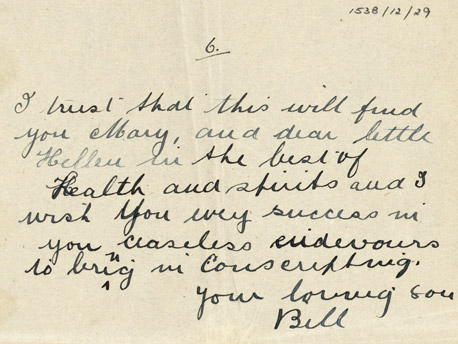 1538/12/29
6.
I trust that this will find
you Mary, and dear little
Hellen in the best of
Health and spirits and I
wish you evey success in
you ceaseless endevours
to bring in Conscriptnig.
your loving son
Bill